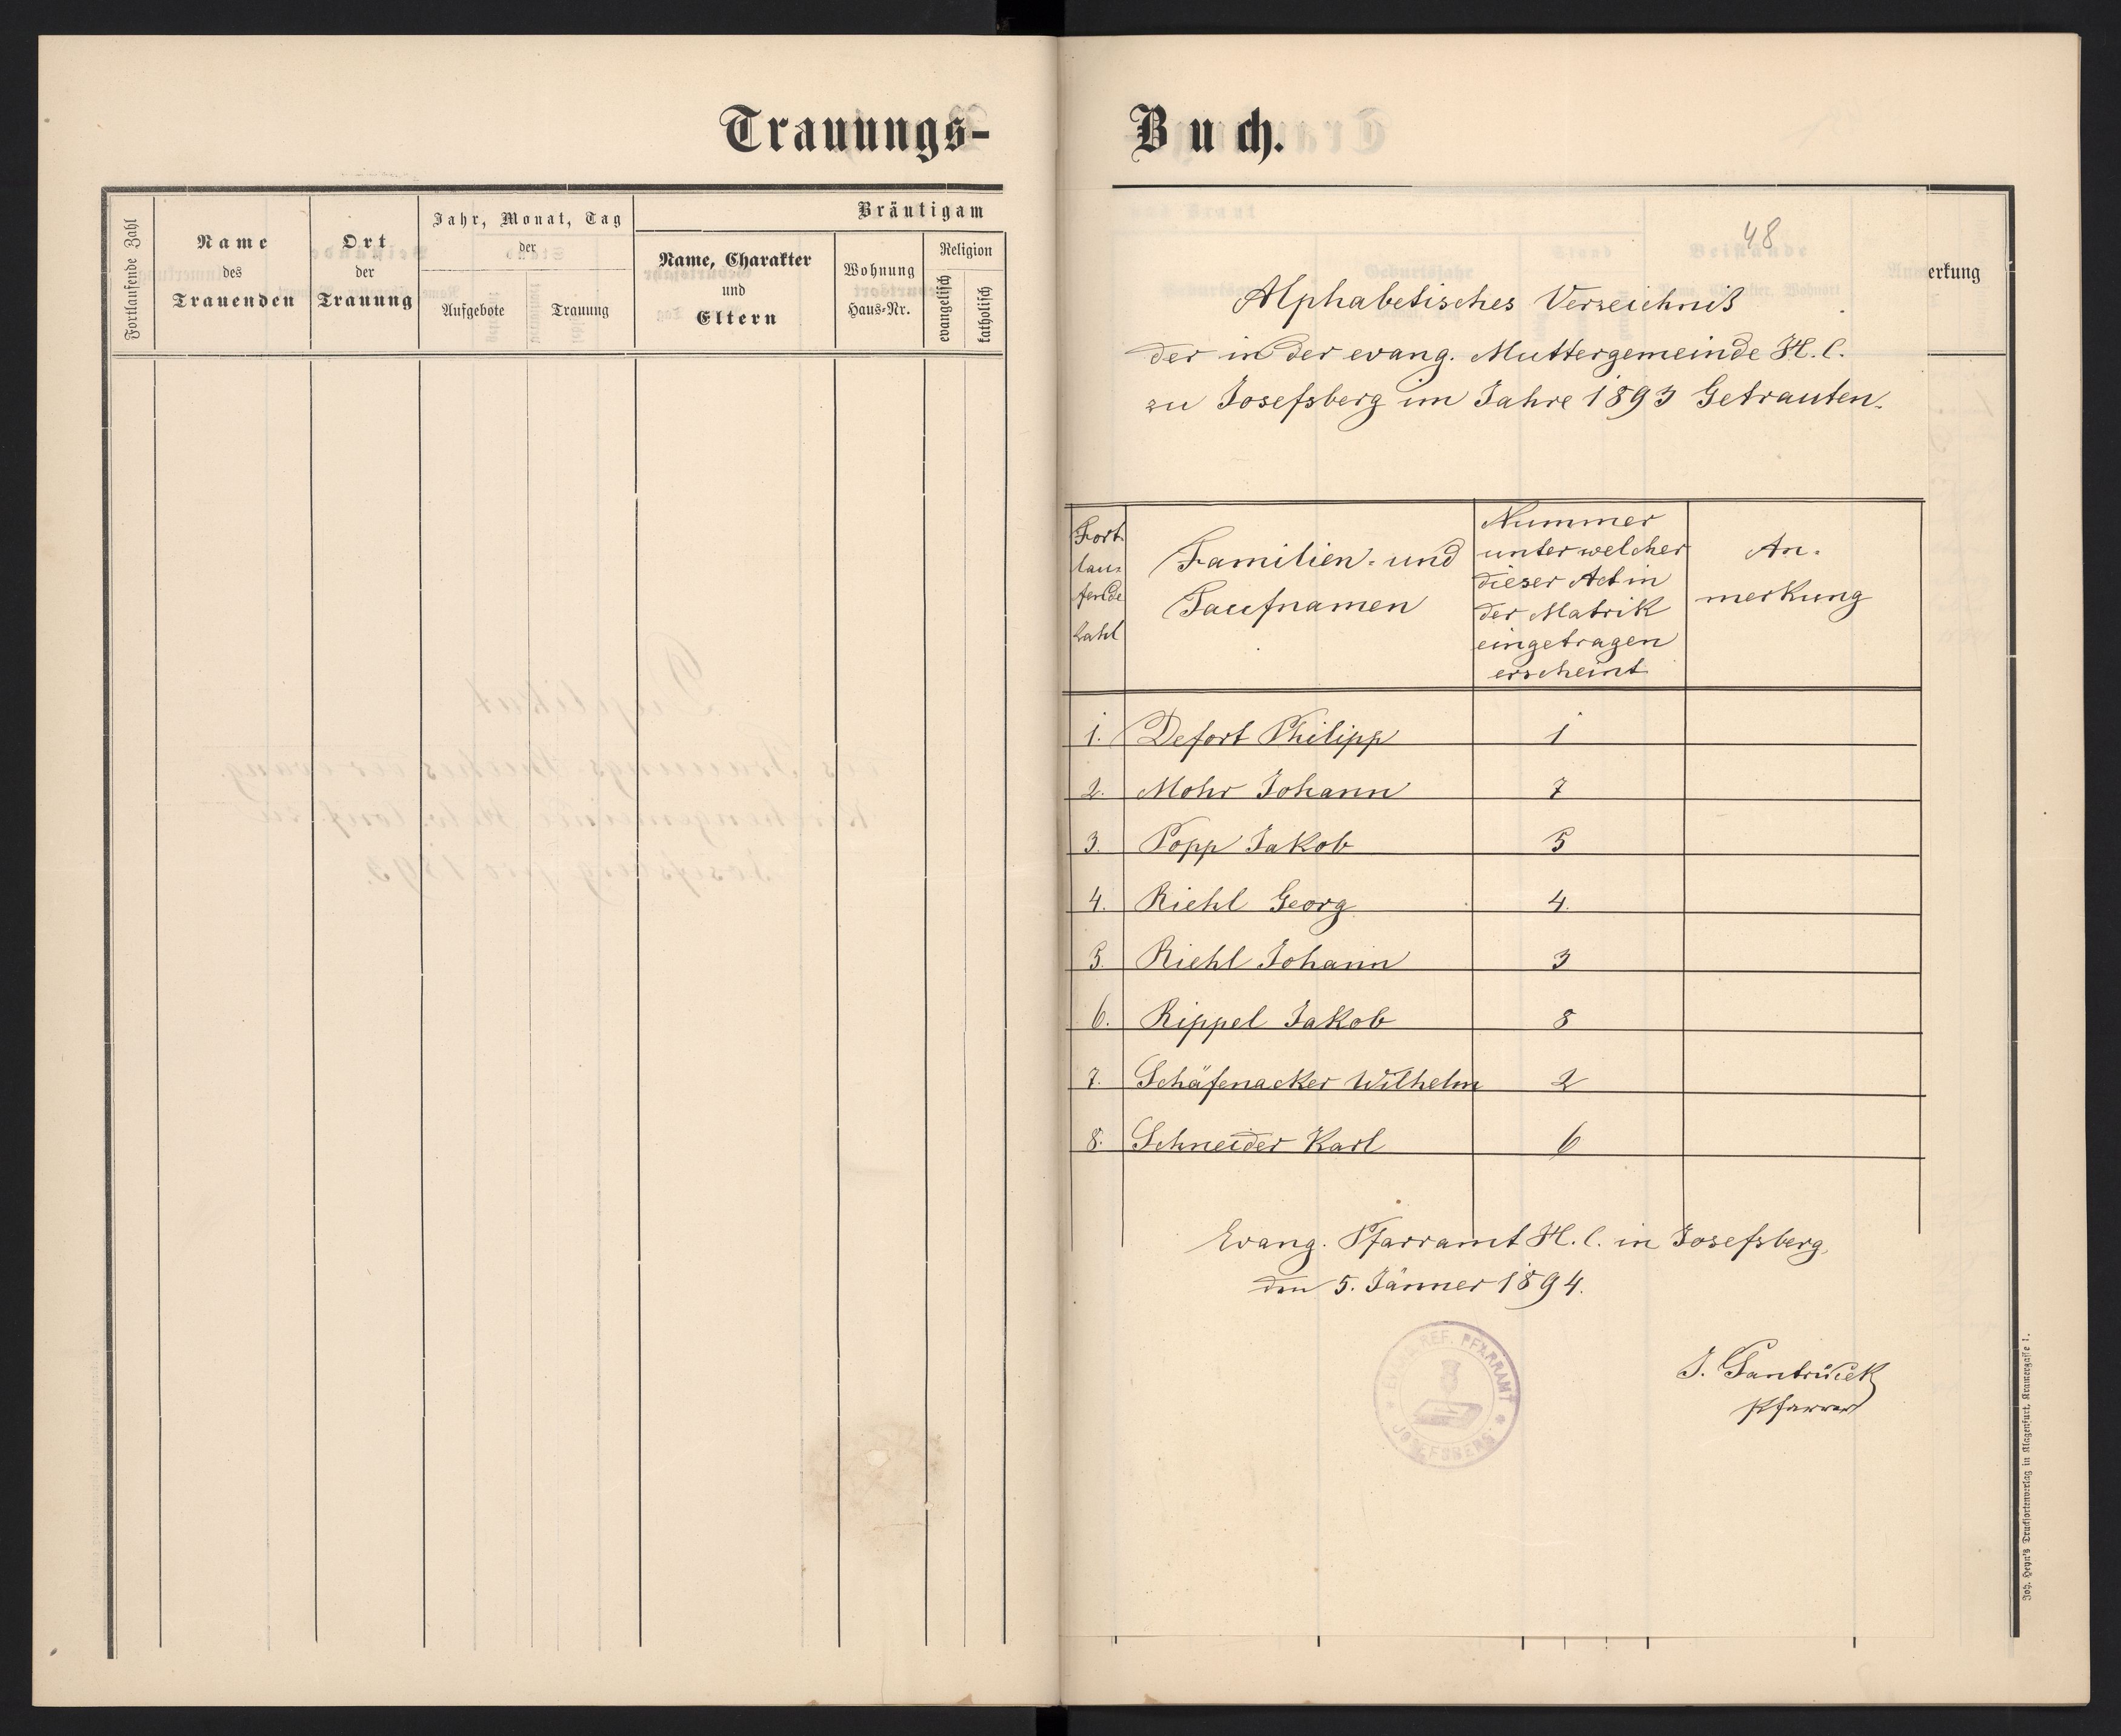 Trauungs-
Fortlaufende Zahl
Name
des
Trauenden
Ort
der
Trauung
Jahr, Monat, Tag
der
Aufgebote
Trauung
Bräutigam
Name, Charakter
und
Eltern
Wohnung
Haus-Nr.
Religion
evangelisch
katholisch
Buch.
48
erkung
Alphabetisches Verzeichniß
der in der evang. Muttergemeinde H. C.
zu Josefsberg im Jahre 1893 Getrauten.
Fort
lau-
fende
Zahl
Familien- und
Taufnamen
Nummer
unter welcher
dieser Act in
der Matrik
eingetragen
erscheint
An-
merkung
1. Defort Philipp 1
2. Mohr Johann 7
3. Popp Jakob 5
4. Riehl Georg 4.
5. Riehl Johann 3
6. Rippel Jakob 8
7. Schäfenacker Wilhelm 2
8. Schneider Karl 6
Evang. Pfarramt H. C. in Josefsberg,
den 5. Jänner 1894.
REF. PFARRAMT
JOSEFSBERG
Pfarrer
Joh. Heyn's Drucksortenverlag in Klagenfurt, Kramergasse 1.